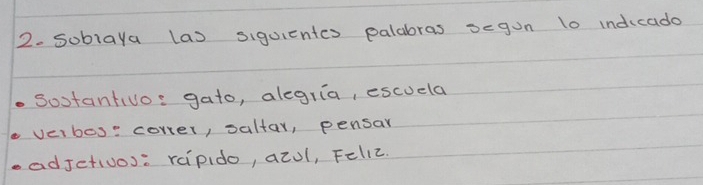 2- Subraya las siguientes palabras segun lo indicado
• Sustantivo: gato, alegría, escuela
• verbos: correr, saltar, pensar
• adjetivos: rápido, azul, Feliz.